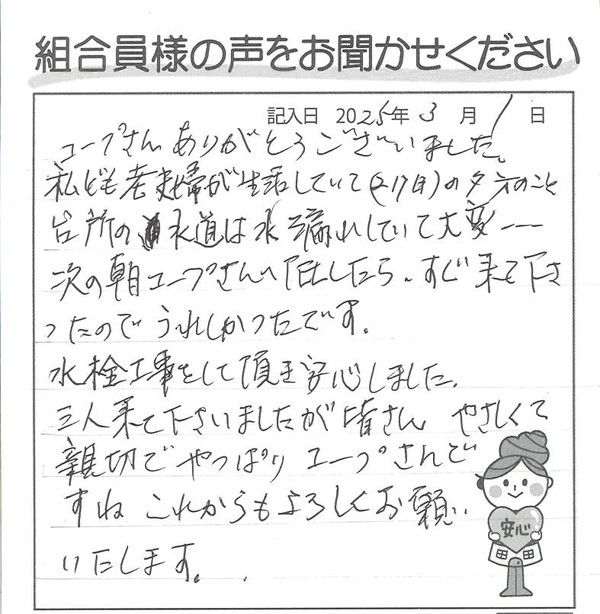 組合員様の声をお聞かせください
記入日 2025年 3 月 1 日
コープさん ありがとうございました。
私ども老夫婦が生活していて(2/17日)の夕方のこと
台所の水道は水が漏れしていて大変ーー
次の朝コープさんへTELしたら、すぐ来て下さ
ったので うれしかったです。
水栓工事をして頂き安心しました。
三人来て下さいましたが皆さん やさしくて
親切で やっぱり コープさんで
すね これからもよろしくお願い
いたします。
安心